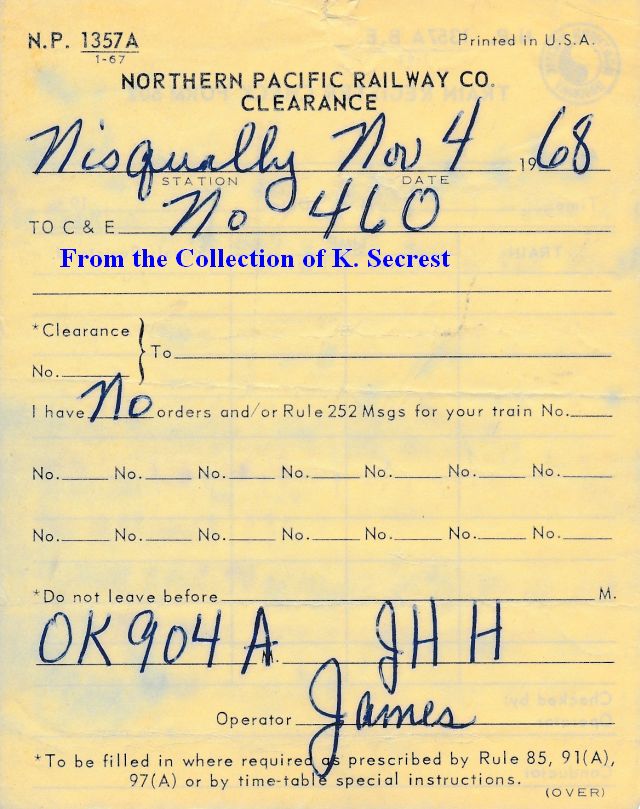 N.P. 1357A Printed in U.S.A.
1-67
NORTHERN PACIFIC RAILWAY CO.
CLEARANCE
Nisqually Nov 4 1968
STATION DATE
TO C & E No 460
From the Collection of K. Secrest
*Clearance
No. } To
I have No orders and/or Rule 252 Msgs for your train No.
No. No. No. No. No. No. No.
No. No. No. No. No. No. No.
*Do not leave before M.
OK 904 A M. JHH
Operator James
*To be filled in where required as prescribed by Rule 85, 91(A),
97(A) or by time-table special instructions.
(OVER)